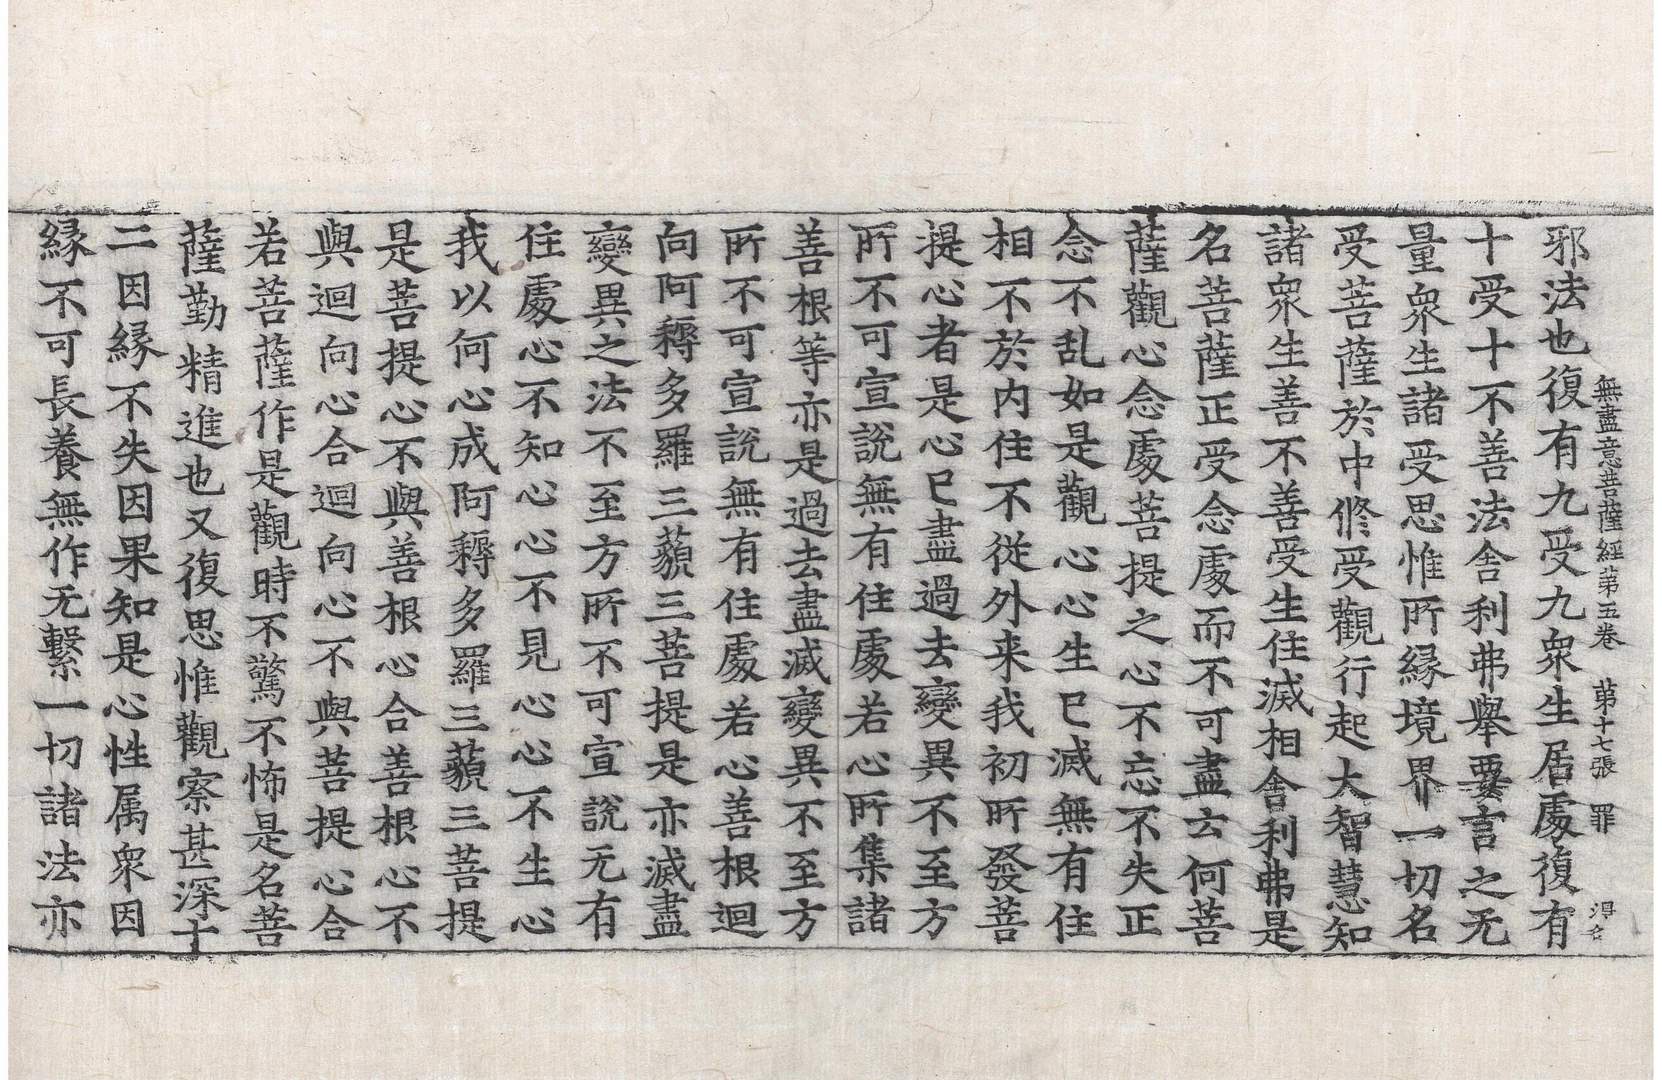 無盡意菩薩經苐五卷　苐十七張　罪　淂名
邪法也復有九受九衆生居處復有
十受十不善法舍利弗舉要言之无
量衆生諸受思惟所縁境界一切名
受菩薩於中修受觀行起大智慧知
諸衆生善不善受生住滅相舍利弗是
名菩薩正受念處而不可盡云何菩
薩觀心念處菩提之心不忘不失正
念不乱如是觀心心生已滅無有住
相不於内住不從外来我初所發菩
提心者是心已盡過去變異不至方
所不可宣說無有住處若心所集諸
善根等亦是過去盡滅變異不至方
所不可宣說無有住處若心善根迴
向阿耨多羅三藐三菩提是亦滅盡
變異之法不至方所不可宣說无有
住處心不知心心不見心心不生心
我以何心成阿耨多羅三藐三菩提
是菩提心不與善根心合善根心不
與迴向心合迴向心不與菩提心合
若菩薩作是觀時不驚不怖是名菩
薩勤精進也又復思惟觀察甚深十
二因縁不失因果知是心性属衆因
縁不可長養無作无繫一切諸法亦